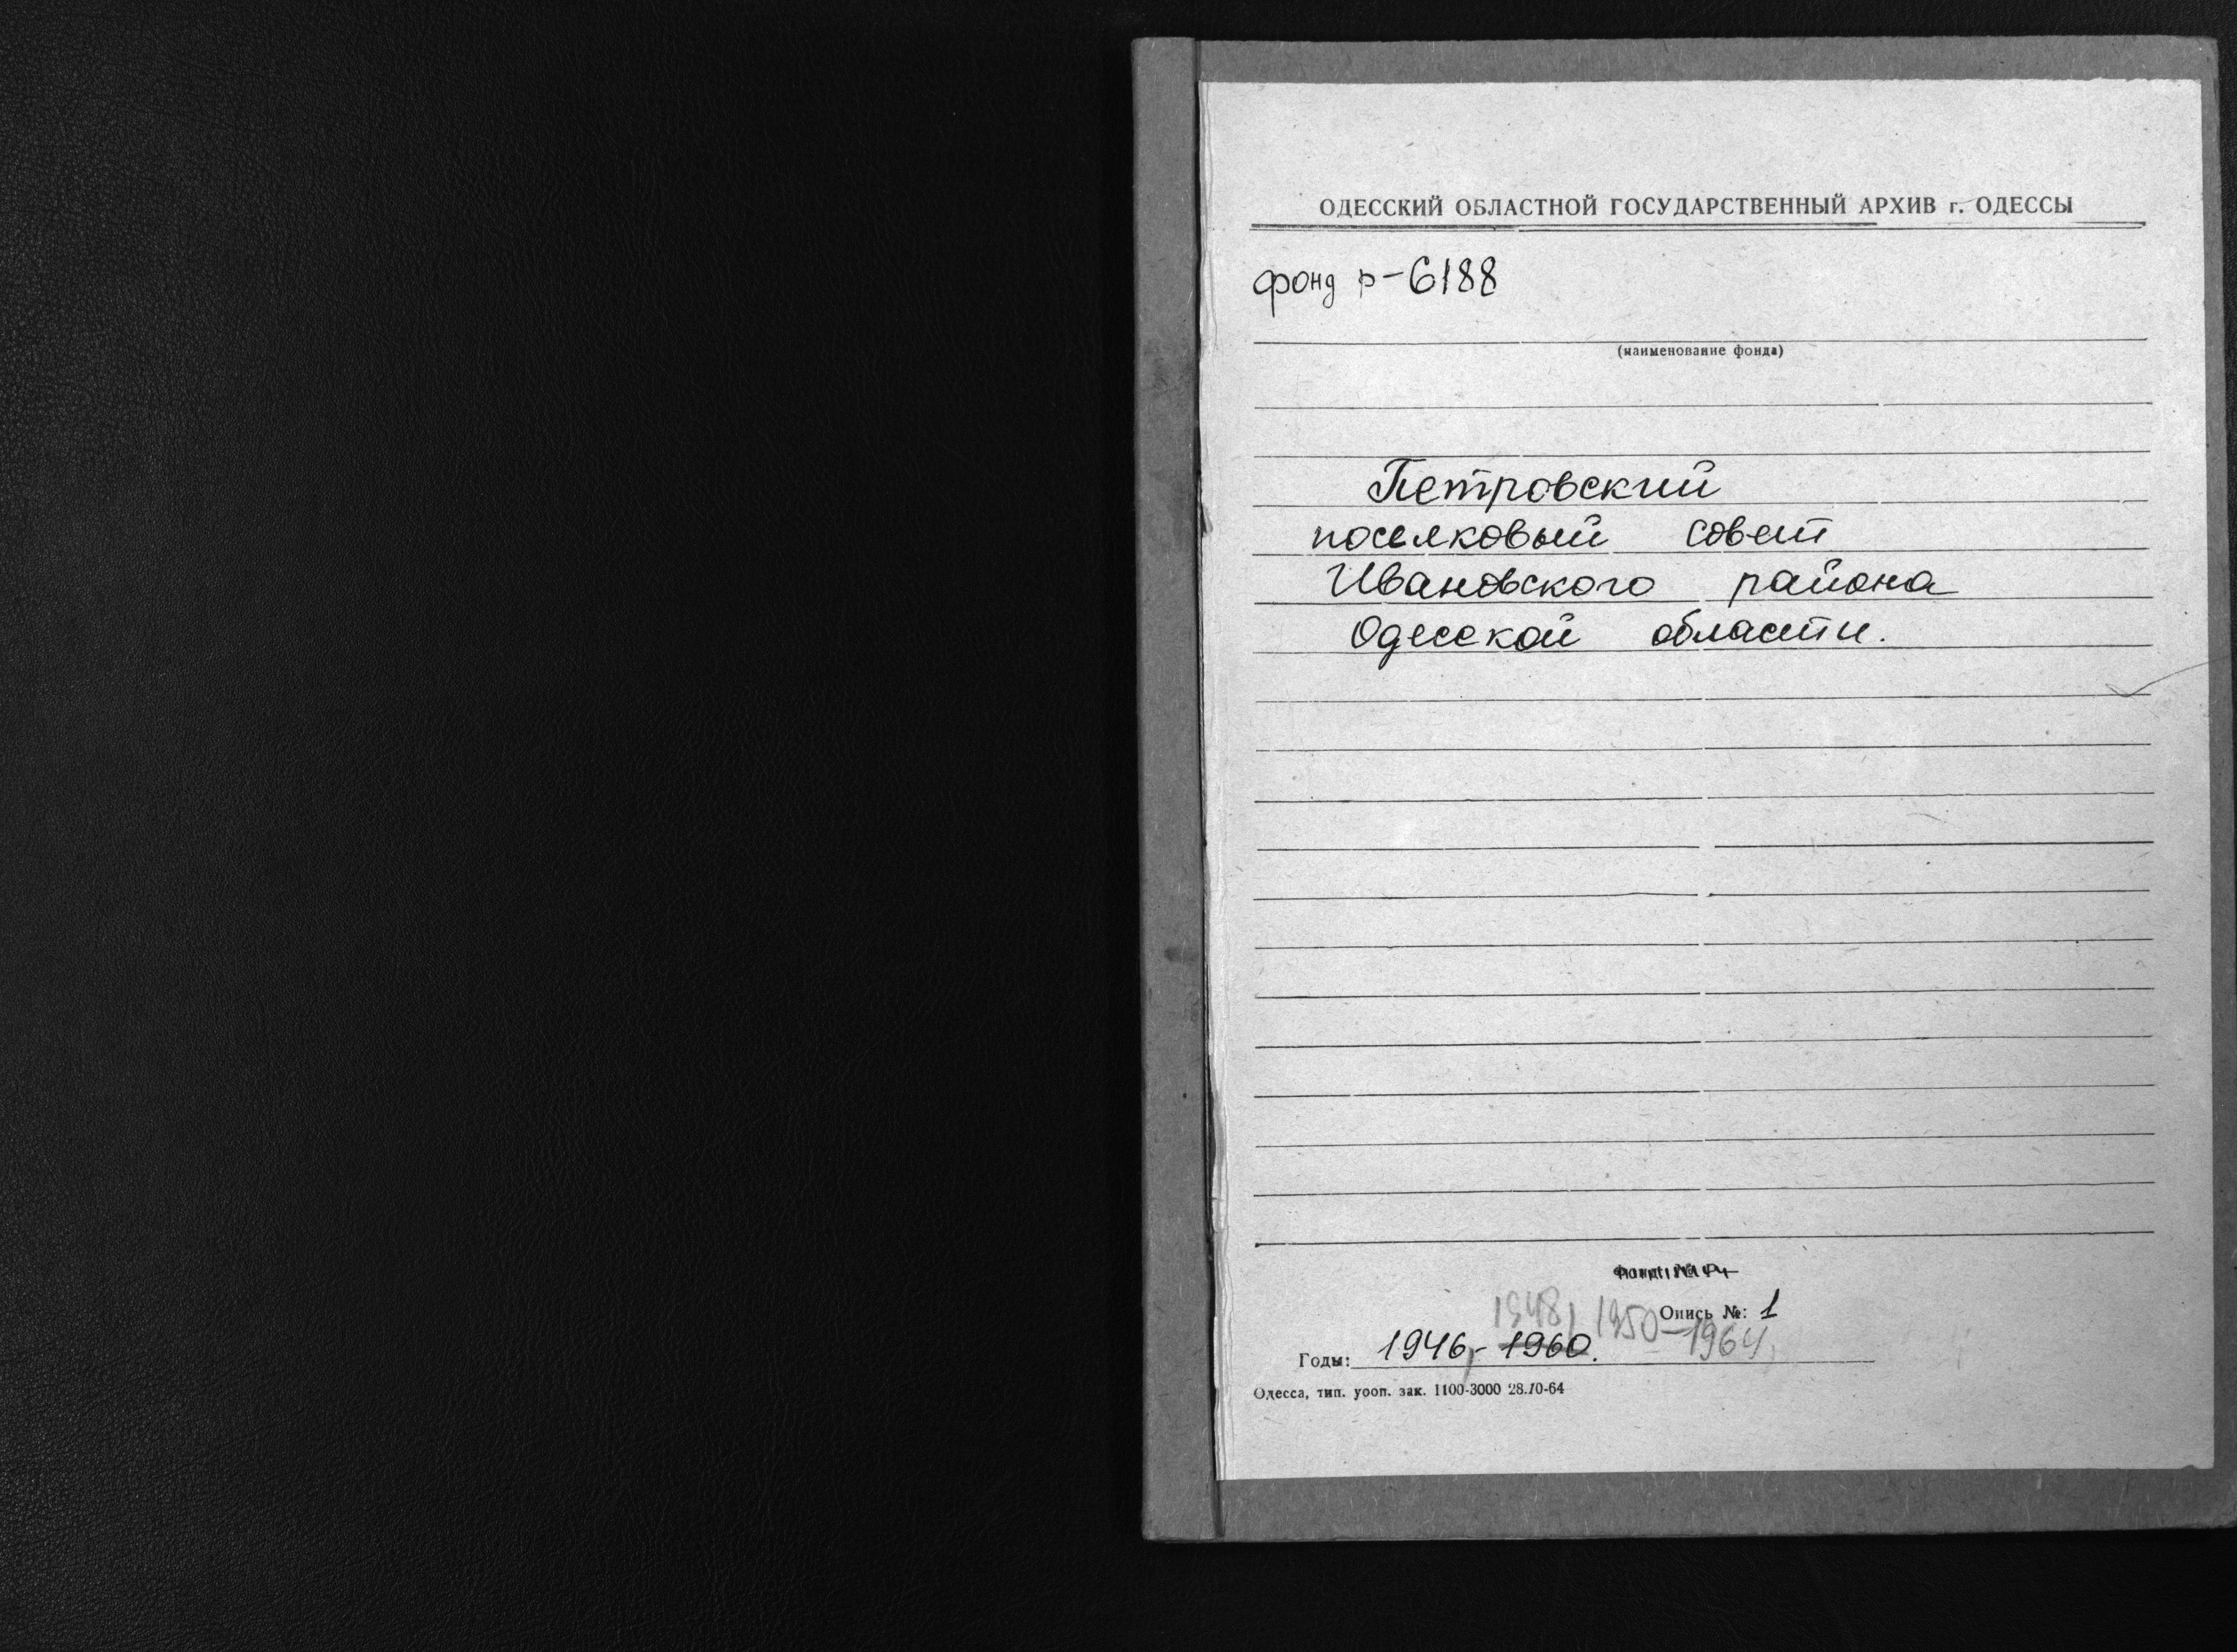 ОДЕССКИЙ ОБЛАСТНОЙ ГОСУДАРСТВЕННЫЙ АРХИВ г. ОДЕССЫ
фонд р-6188
(наименование фонда)
Петровский
поселковый совет
Ивановского района
Одесской области.
Опись №: 1
1948, 1950-1964,
Годы: 1946,-1960.
Одесса, тип. уооп. зак. 1100-3000 28.10-64